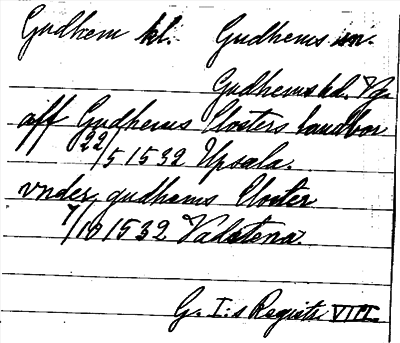 Gudhem kl. Gudhems sn.
Gudhems hd. Vg.
aff Gudhems Closters landbor
22/5 1532 Upsala.
vnder gudhems Closter
7/10 1532 Vadstena.
G. I:s Registr. VIII.